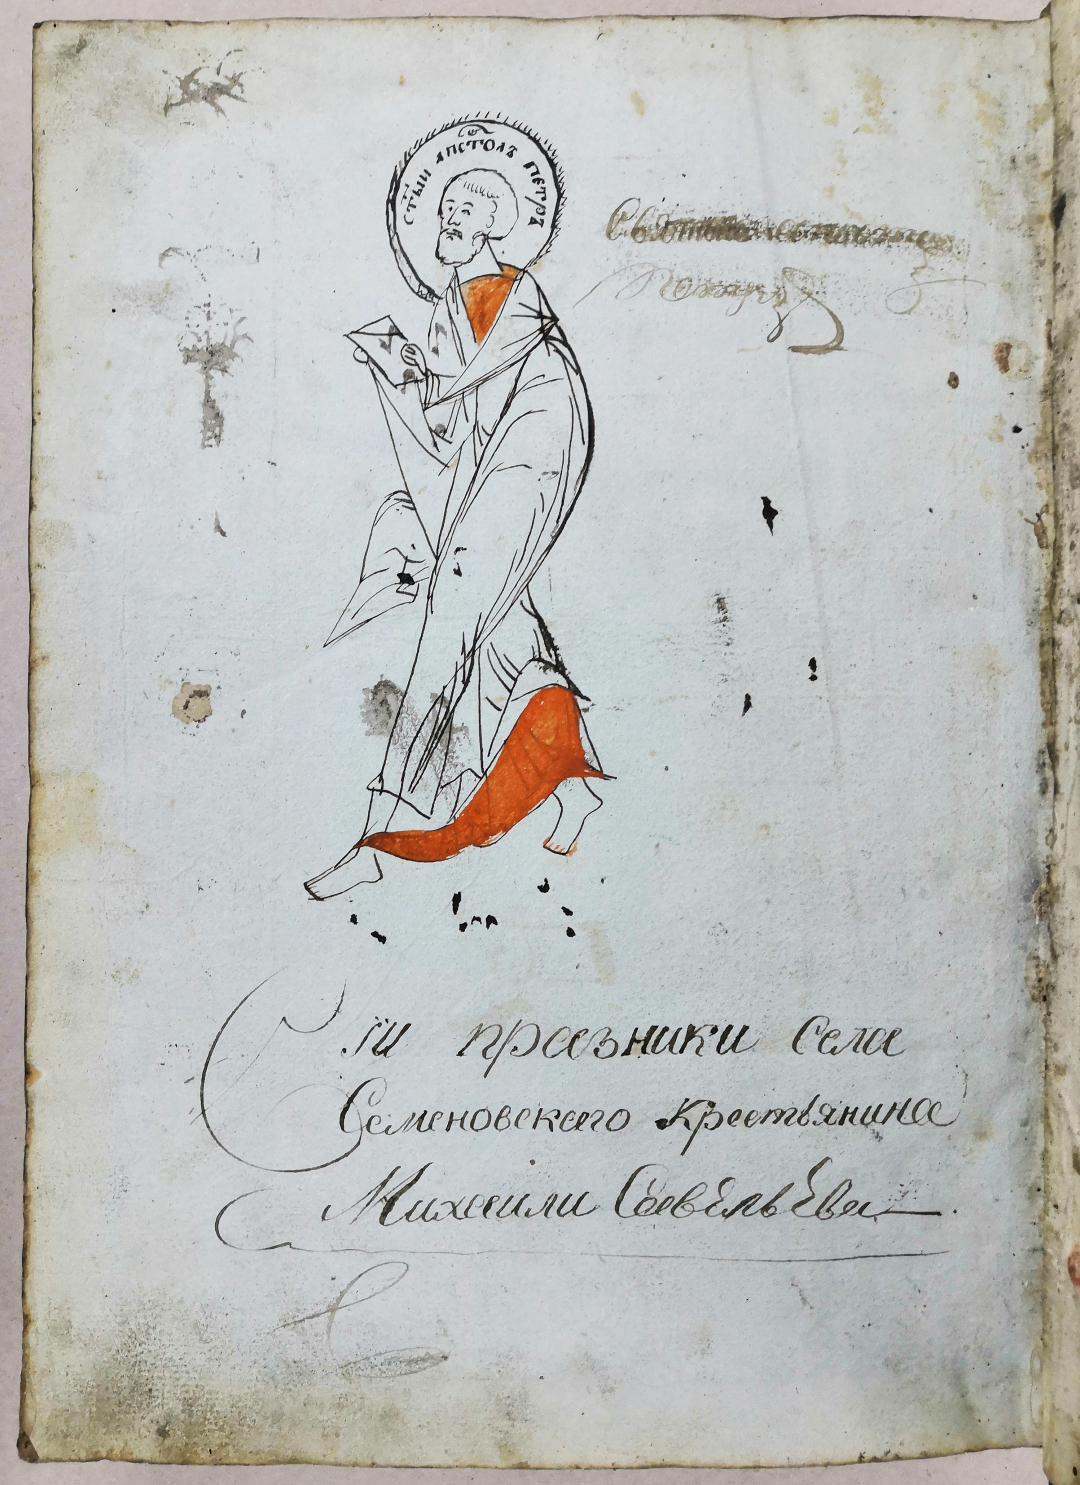 стыи апстолъ петръ
Сіи празники села
Семеновскаго крестьянина
Михаили Савельева